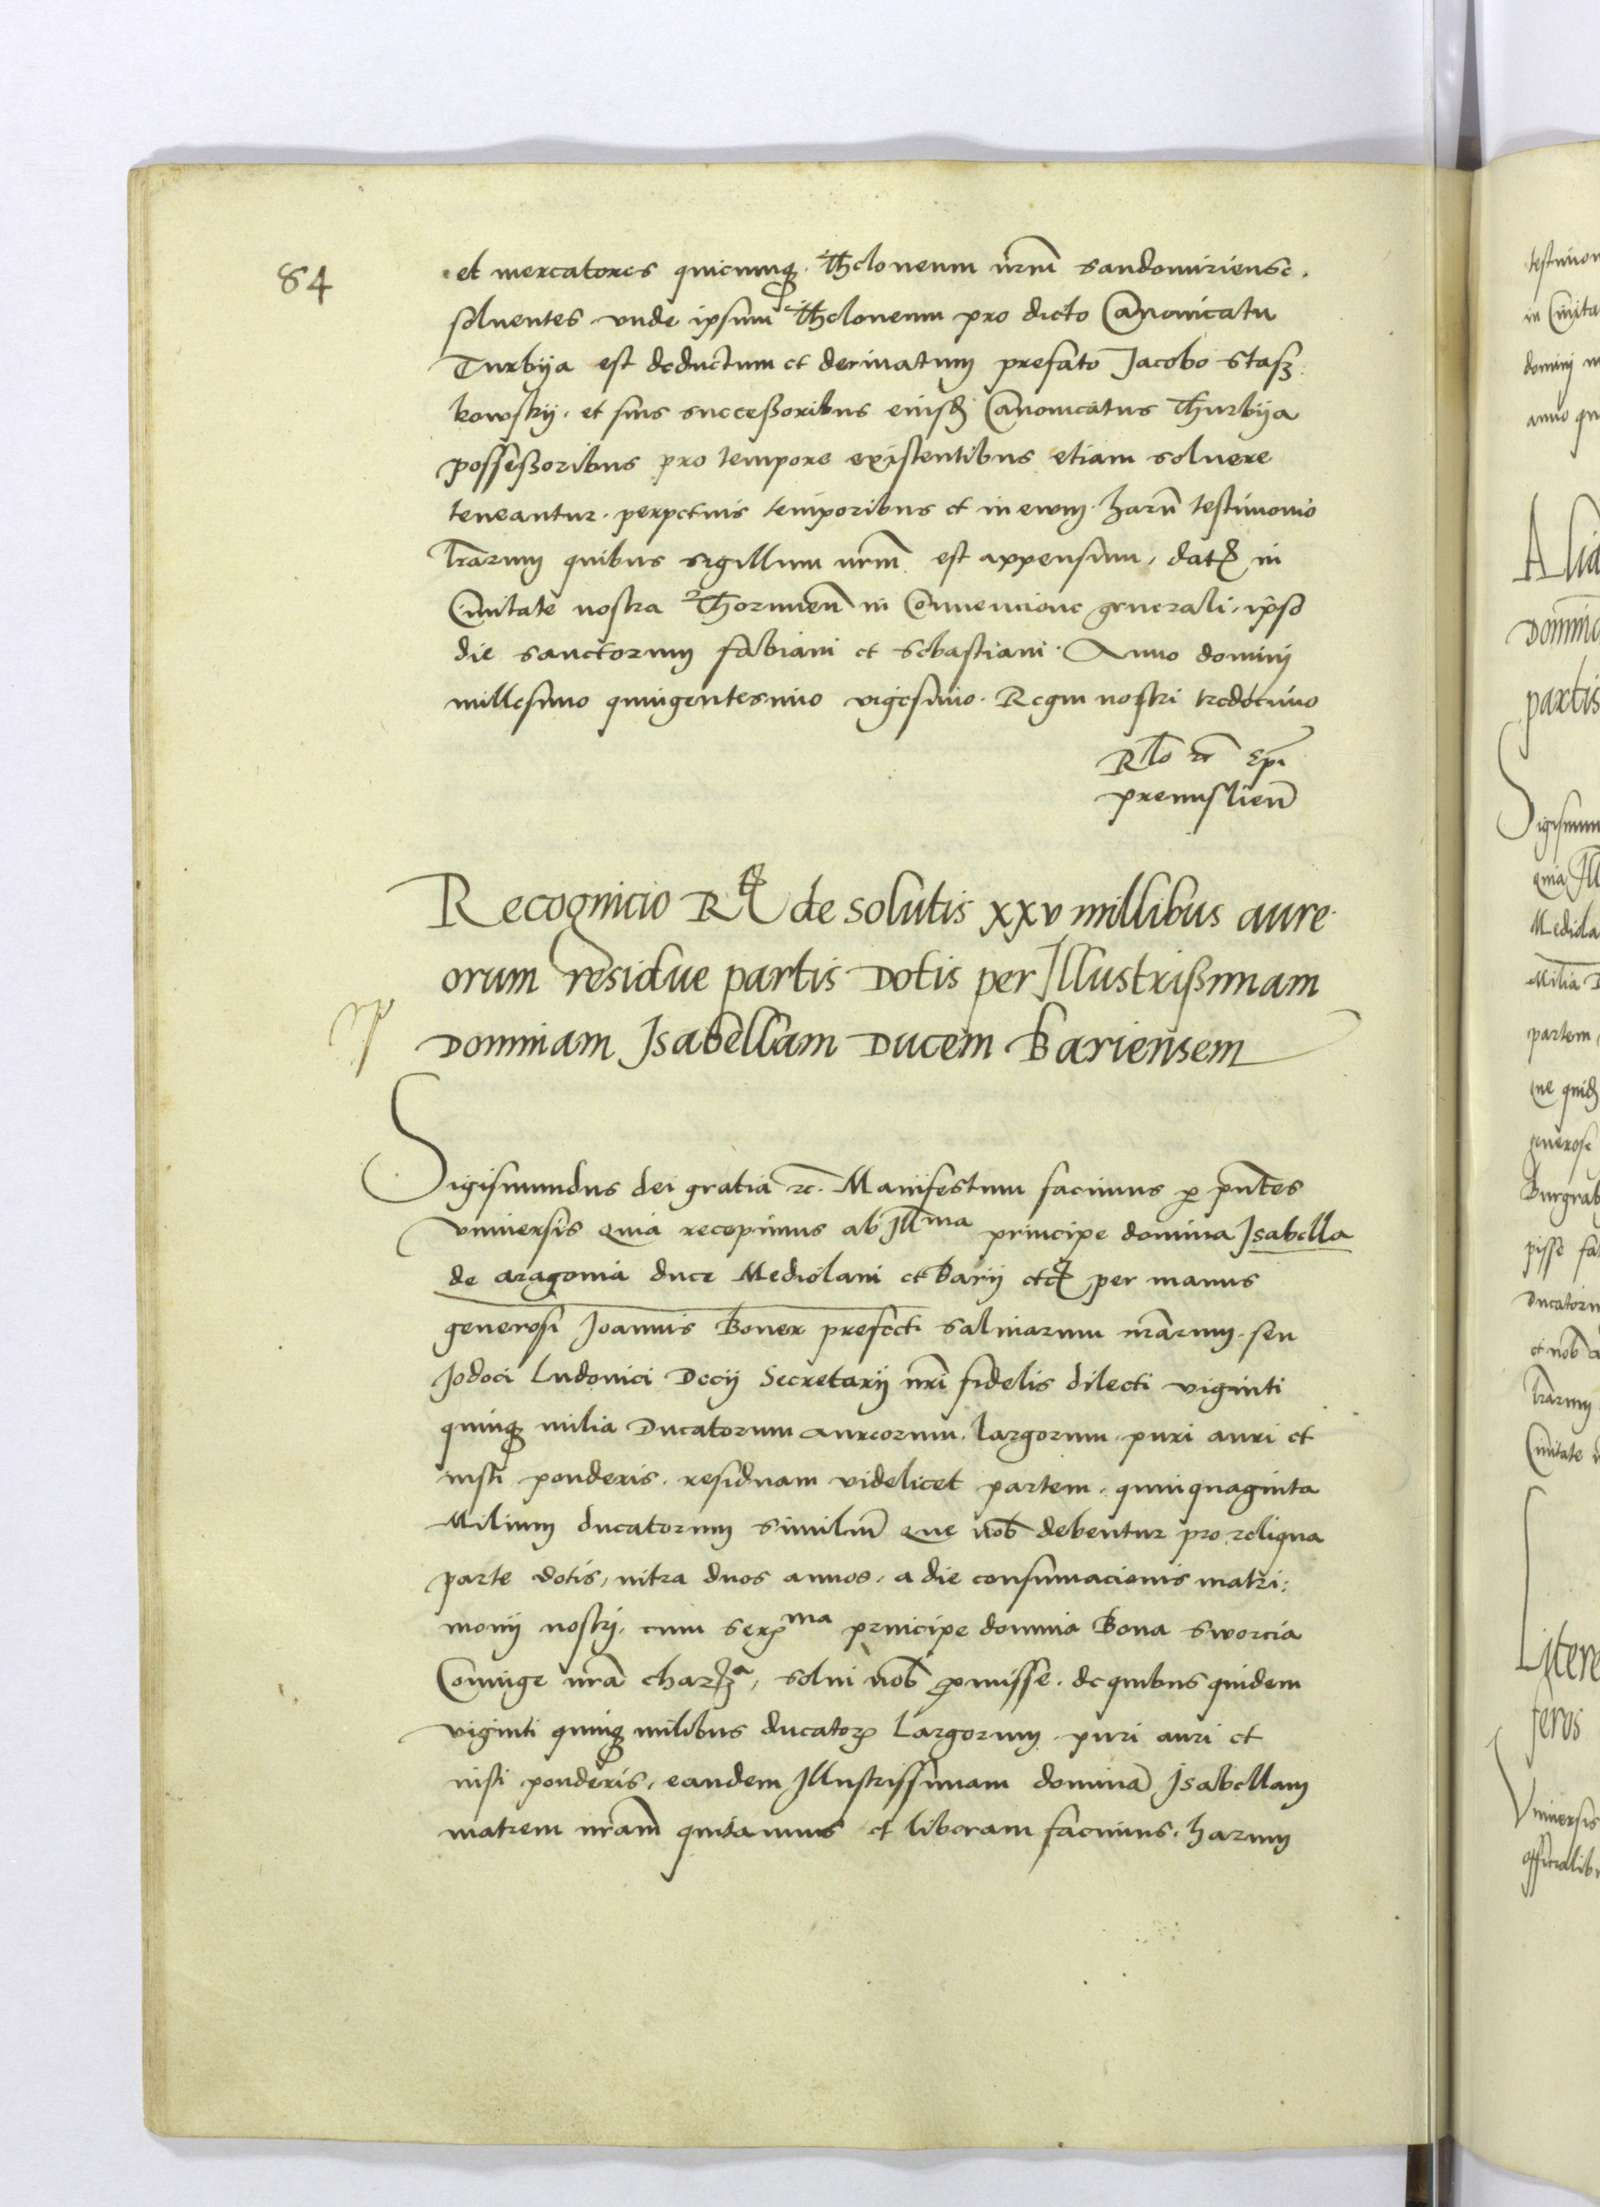 84
et mercatores quicunq Theloneum nrm sandomiriense.
soluentes vnde ipsum Theloneum pro dicto Canonicatu
Turbija est deductum et deriuatum prefato Jacobo Stasz
kowskij. et suis successoribus eiusd Canonicatus Thurbija
possessoribus pro tempore existentibus etiam soluere
teneantur. perpetuis temporibus et in ewm. harū testimonio
lrarum quibus sigillum nrm est appensum, dat in
Ciuitate nostra Thorunien in Conuencione generali, ipso
die sanctorum fabiani et sebastiani. Anno domini
millesimo quingentesimo vigesimo. Regni nostri tredecimo
Rlo Epi
premislien
Recognicio R de solutis xxv millibus aure
orum residue partis Dotis per Illustrissimam
Dominam Isabellam Ducem Bariensem
Sigismundus dei gratia rc. Manifestum facimus p pntes
vniuersis quia recepimus ab Illma principe domina Isabella
de aragonia duce Mediolani et Barij etc per manus
generosi Joannis Boner prefecti salinarum nrarum. seu
Jodoci Ludouici Decij Secretarij nri fidelis dilecti viginti
quinq milia Ducatorum aureorum. largorum puri auri et
iusti ponderis. residuam videlicet partem. quinquaginta
Milium ducatorum similiū que nob debentur pro reliqua
parte dotis, intra duos annos, a die consumacionis matri:
monij nostri, cum serma principe domina Bona sworcia
Coniuge nra char, solui nob pmisse. de quibus quidem
viginti quinq milibus ducator largorum puri auri et
iusti ponderis, eandem Illustrissimam dominā Isabellam
matrem nram quitamus et liberam facimus. harum